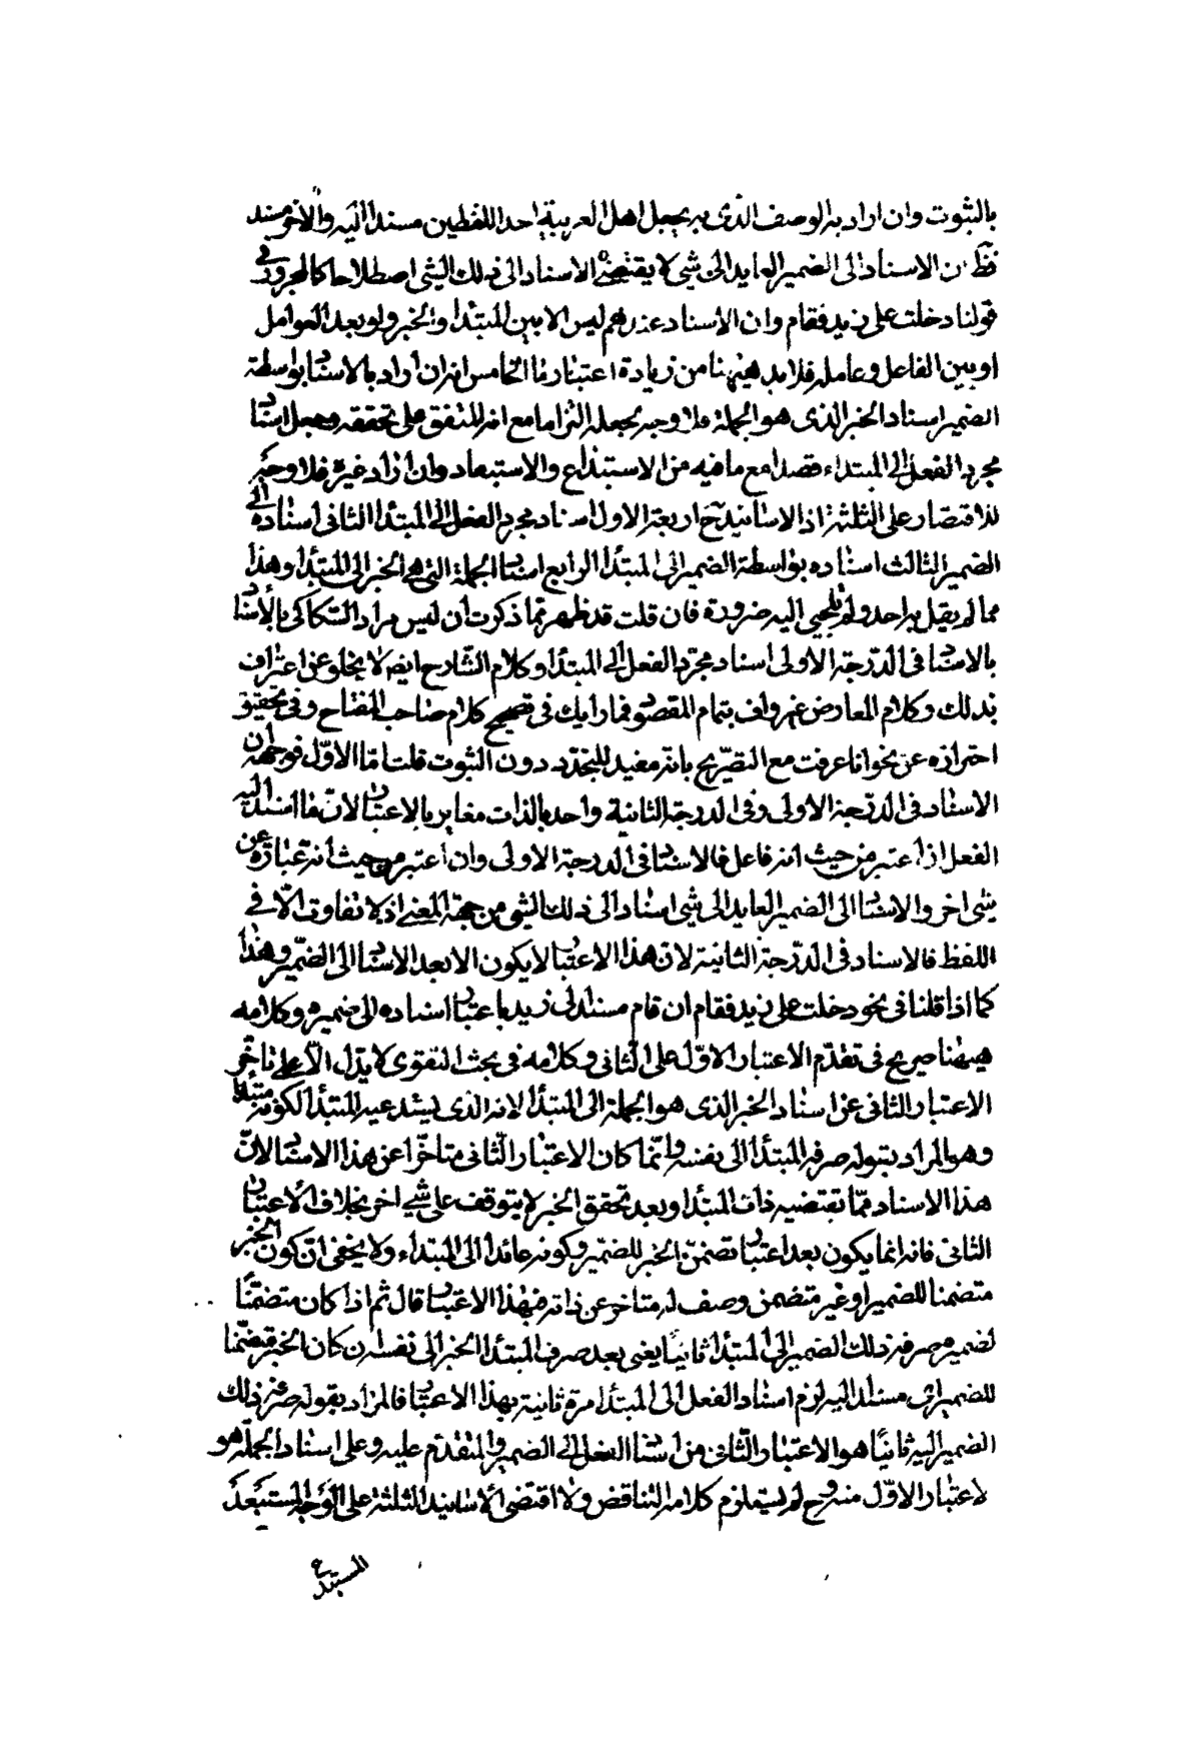 بالثبوت وان اراد به الوصف الذى به يجعل اهل العربية احد اللفظين مسندا اليه والاخر مسند
فظ ان الاسناد الى الضمير العايد الى شى لا يقتضى الاسناد الى ذلك الشى اصطلاحا كالمجرور فى
قولنا دخلت على زيد فقام وان الاسناد عندهم ليس الا بين المبتدا والخبر ولو بعد العوامل
او بين الفاعل وعامله فلا بد هيهنا من زيادة اعتبار اما الخامس فانه ان اراد بالاسناد بواسطة
الضمير اسناد الخبر الذى هو الجملة فلا وجه لجعله التزاما مع انه المتفق على تحققه وجعل اسناد
مجرد الفعل الى المبتداء قصدا مع ما فيه من الاستبداع والاستبعاد وان اراد غيره فلا وجه
للاقتصار على الثلثة اذ الاسانيد ح اربعة الاول اسناد مجرد الفعل الى المبتدا الثانى اسناده الى
الضمير الثالث اسناده بواسطة الضمير الى المبتدا الرابع اسناد الجملة التى هى الخبر الى المبتدا وهذا
مما لم يقل به احد ولم تلجىء اليه ضرورة فان قلت قد ظهر مما ذكرت ان ليس مراد السكاكى بالاسناد
بالاسناد فى الدرجة الاولى اسناد مجرد الفعل الى المبتدا وكلام الشارح ايضا لا يخلو عن اعتراف
بذلك وكلام المعارض غير واف بتمام المقصود فما رايك فى تصحيح كلام صاحب المفتاح وفى تحقيق
احترازه عن نحو انا عرفت مع التصريح بانه مفيد للتجدد دون الثبوت قلت اما الاول فوجهه ان
الاسناد فى الدرجة الاولى وفى الدرجة الثانية واحد بالذات مغاير بالاعتبار لان ما اسند اليه
الفعل اذا اعتبر من حيث انه فاعل فالاسناد فى الدرجة الاولى وان اعتبر من حيث انه عبارة عن
شى اخر والاسناد الى الضمير العايد الى شى اسناد الى ذلك الشى من جهة المعنى اذ لا تفاوت الا فى
اللفظ فالاسناد فى الدرجة الثانية لان هذا الاعتبار لا يكون الا بعد الاسناد الى الضمير وهذا
كما اذا قلنا فى نحو دخلت على زيد فقام ان قام مسند الى زيد باعتبار اسناده الى ضميره وكلامه
هيهنا صريح فى تقدم الاعتبار الاول على الثانى وكلامه فى بحث التقوى لا يدل الا على تاخر
الاعتبار الثانى عن اسناد الخبر الذى هو الجملة الى المبتدا لانه الذى يستدعيه المبتدا لكونه مبتدا
وهو المراد بقوله صرفه المبتدا الى نفسه وانما كان الاعتبار الثانى متاخرا عن هذا الاسناد لان
هذا الاسناد مما تقتضيه ذات المبتدا وبعد تحقق الخبر لا يتوقف على شى اخر بخلاف الاعتبار
الثانى فانه انما يكون بعد اعتبار تضمن الخبر للضمير وكونه عائدا الى المبتداء ولا يخفى ان كون الخبر
متضمنا للضمير او غير متضمن وصف له متاخر عن ذاته فبهذا الاعتبار قال ثم اذا كان متضمنا
لضميره صرفه ذلك الضمير الى المبتدا ثانيا يعنى بعد صرف المبتدا الخبر الى نفسه ان كان الخبر متضمنا
للضمير مسند اليه لزم اسناد الفعل الى المبتدا مرة ثانية بهذا الاعتبار فالمراد بقوله صرفه ذلك
الضمير اليه ثانيا هو الاعتبار الثانى من اسناد الفعل الى الضمير والمتقدم عليه وعلى اسناد الجملة هو
لاعتبار الاول منه وح لم يستلزم كلامه التناقض ولا اقتضى الاسانيد الثلثة على الوجه المستبعد
المستبدع